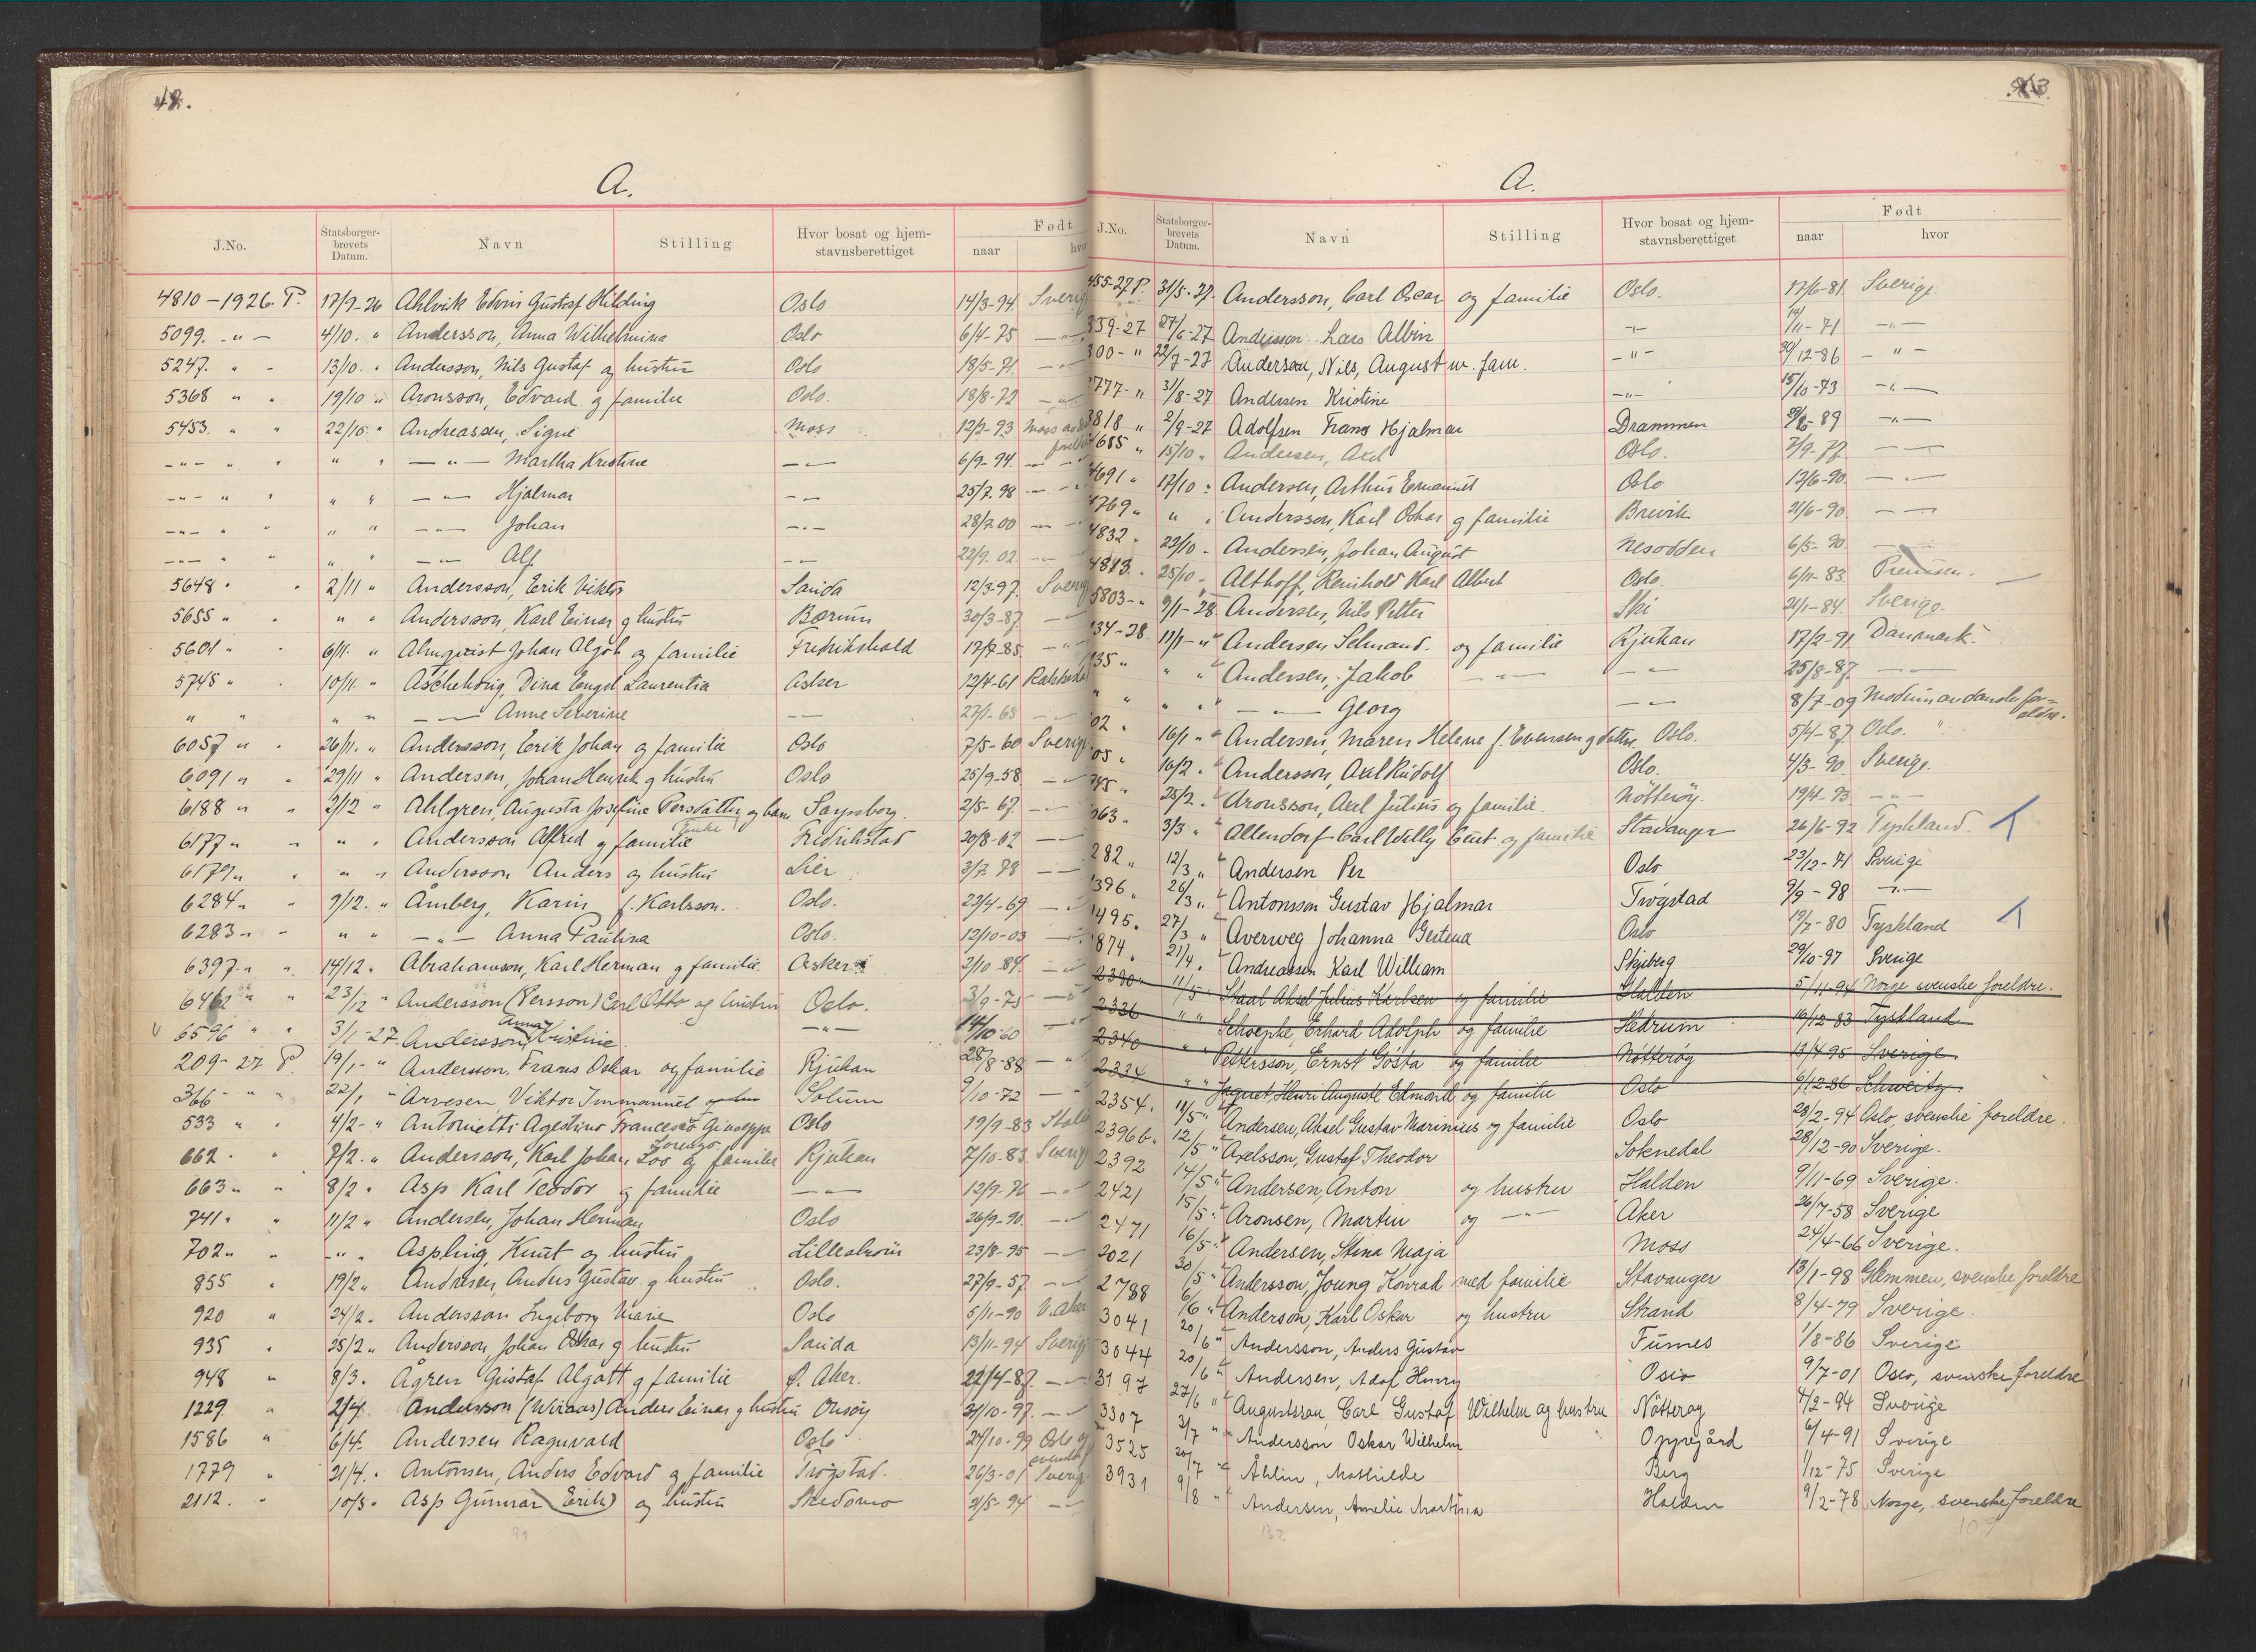 A.
J.No. Statsborger-brevets Datum. Navn Stilling Hvor bosat og hjem-stavnsberettiget Født naar hvor
4810-1926. P. 17/9-26 Ahlvik Edvin Gustaf Hilding Oslo 14/3-94 Sverig
5099. -"- 4/10. " Andersson, Anna Wilhelmina Oslo 6/4-75 -"-
5247. " - 13/10. " Andersson, Nils Gustaf og hustru Oslo 18/5-71. -"-
5368 " " 19/10 " Aronsson, Edvard og familie Oslo. 18/8-72 -"-
5453. " " 22/10. " Andreassen, Signe Moss 12/2-93 Moss
-"- " " " " -"- Martha Kristine -"- 6/9-94. -"-
-"- " " " " -"- Hjalmar -"- 25/7.98 -"-
-"- " " " " -"- Johan -"- 28/7.00 -"-
-"- " " " " -"- Alf -"- 22/9.02 -"-
5648 " " 2/11 " Andersson, Erik Viktor Sauda 12/3-97. Sverig
5655 " " " " Andersson, Karl Einar og hustru Bærum 30/3-87. -"-
5601 " " 6/11. " Almqvist Johan Algot og familie Fredrikshald 17/7-85. -"-
5745 " " 10/11. " Aschehoug, Dina Engel Laurentia Asker 12/4-61
" " " " -"- Anne Severine -"- 27/1-65 -"-
6057 " " 26/11. " Andersson, Erik Johan og familie Oslo 7/5-60 Sverig
6091 " " 29/11 " Andersen, Johan Henrik og hustru Oslo 25/9-58. -"-
6188 " " 2/12 " Ahlgren, Augusta Josefine Persdatter og barn Sarpsborg. 2/5-67. -"-
6177 " " " " Andersson Alfred og familie Fredrikstad 20/8-62 -"-
6179 " " " " Andersson Anders og hustru Lier 3/7 78 -"-
6284 " " 9/12. " Åmberg, Karin f. Karlsson. Oslo. 23/4-69 -"-
6283 " " " " -"- Anna Paulina Oslo. 12/10-03 -"-
6397 " " 14/12 " Abrahamson, Karl Herman og familie. Asker 2/10-84. -"-
6462 " " 23/12 " Andersson (Persson) Carl Otto og hustru Oslo. 3/9-75 -"-
6596 " " 3/1-27. Andersson, Anna Kristine -"- 14/10 60 -"-
209-27 P. 19/1-" Andersson, Frans Oskar og familie Rjukan 28/8-88 -"-
366 - " " 22/1 " Arvesen, Viktor Immanuel Solum 9/10-72 -"-
533 " " 4/2-" Antonietti Agostino Francesco Giuseppe Lorenzo Oslo 19/9-83 Italia
662. " 7/2. " Andersson, Karl Johan og familie Rjukan 7/10-83. Sverig
663 " " 8/2 " Asp Karl Teodor og familie -"- 12/9-76 -"-
741 " " 11/2 " Andersen, Johan Herman Oslo 26/9-90. -"-
702 " " -"- Aspling, Knut og hustru Lillestrøm 23/8-95 -"-
855 " 19/2 " Andresen, Anders Gustav og hustru Oslo. 27/9-57. -"-
920 " 24/2. Andersson Ingeborg Marie Oslo 5/11-90 V. Aker
935 " 25/2 " Andersson, Johan Oskar og hustru Sauda 13/11-94 Sverig
948 " 8/3. Ågren Gustaf Algott og familie Ø. Aker. 22/4-87. -"-
1229. " 2/4. Andersson (Wiraas) Anders Einar og hustru Onsøy 31/10-97. -"-
1586 " 6/4. Andersen Ragnvald Oslo 24/10-99 Oslo
1779 " 21/4. " Antonsen, Anders Edvard og familie Trøgstad. 26/3-01 Sverig
2112. " 10/5 " Asp Gunnar (Erik) og hustru Skedsmo 21/5-94 -"-
A.
J.No. Statsborger-brevets Datum. Navn Stilling Hvor bosat og hjem-stavnsberettiget Født naar hvor
455-27 P. 31/5-27. Andersson, Carl Oscar og familie Oslo. 17/6-81 Sverige
359-27 27/6-27 Andersson Lars Albin -"- 19/11-71 -"-
300-" 22/7-27 Anderson, Nils, August m. fam. -"- 30/12-86 -"-
2777-" 31/8-27 Andersen Kristine -"- 15/10-73 -"-
3818 " 2/9-27 Adolfsen Frans Hjalmar Drammen 9/8-89 -"-
685 " 15/10 " Andersen, Axel Oslo. 7/9-77. -"-
4691 " 17/10 " Andersen, Arthur Emanuel Oslo 12/6-90. -"-
4769 " " " Andersson, Karl Oskar og familie Brevik 21/6-90. -"-
4832 " 22/10 - Andersen, Johan August Nesodden 6/5-90. -"-
4813. 25/10 - Althoff, Reinhold Karl Albert Oslo. 6/11-83. Preussen.
5803-" 9/1-28 Andersen, Nils Petter Ski 21/1-84. Sverige.
134-28 11/1-" Andersen Selmand. og familie Rjukan 17/2-91. Danmark.
135 " " " Andersen, Jakob -"- -"- 25/8-87. -"-
" " " -"- Georg -"- 8/7-09 Modum av danske foreldre.
02 " 16/1 " Andersen, Maren Helene f. Evensen og datter Oslo. 5/4-87. Oslo. "
05 " 10/2. " Andersson, Axel Rudolf Oslo. 4/3-90. Sverige.
945 " 25/2. " Aronsson, Axel Julius og familie. Nøtterøy. 19/4-93 -"-
063 " 3/3 " Allendorf Carl Willy Curt og familie Stavanger 26/6-92 Tyskland.
282 " 12/3 " Andersen Per Oslo 23/12-71 Sverige
1396 " 26/3 " Antonsson Gustav Hjalmar Trøgstad 9/9-98 -"-
1495 " 27/3 " Averweg Johanna Gesiena Oslo 19/7-80 Tyskland
1874 " 21/4. " Andreassen Karl William Skjeberg 29/10-97 Sverige
2300 11/5 " Staal Aksel Julius Karlsen og familie Halden 5/11-94 Norge svenske foreldre.
2336 " " Schoepke, Erhard Adolph og familie Hedrum 16/12-83 Tyskland
2340 " " Pettersson, Ernst Gösta og familie Nøtterøy 13/4-95 Sverige
2334 " " Jaquet, Henri Auguste Edmond og familie Oslo 6/12-86 Schweitz.
2354. 11/5 " Andersen, Aksel Gustav Marinius og familie Oslo 28/2-94 Oslo, svenske foreldre.
2396b. 12/5 " Axelsson, Gustaf Theodor Soknedal 28/12-90 Sverige.
2392 14/5 " Andersen, Anton og hustru Halden 9/11-69 Sverige.
2421 15/5 " Aronsen, Martin og -"- Aker 26/7-58 Sverige
2471 16/5 " Andersen, Stina Maja Moss 24/4-66 Sverige.
2021 20/5 " Andersson, Joung Konrad med familie Stavanger 13/1-98 Glemmen, svenske foreldre
2788 6/6 " Anderson, Karl Oskar og hustru Strand 8/4-79 Sverige.
3041 20/6 " Andersson, Anders Gustav Furnes 1/8-86 Sverige
3044 20/6 " Andersen, Adof Henry Oslo 9/7-01 Oslo, svenske foreldre
3197 27/6 " Augustsson, Carl Gustaf Wilhelm og hustru Nøtterøy 4/2-94 Sverige
3307 3/7 " Andersson Oskar Wilhelm Oppegård 6/4-91 Sverige
3525 20/7 " Åhlin, Mathilde Berg 1/12-75 Sverige
3931 9/8 " Andersen, Amelie Martina Halden 9/2-78 Norge, svenske foreldre